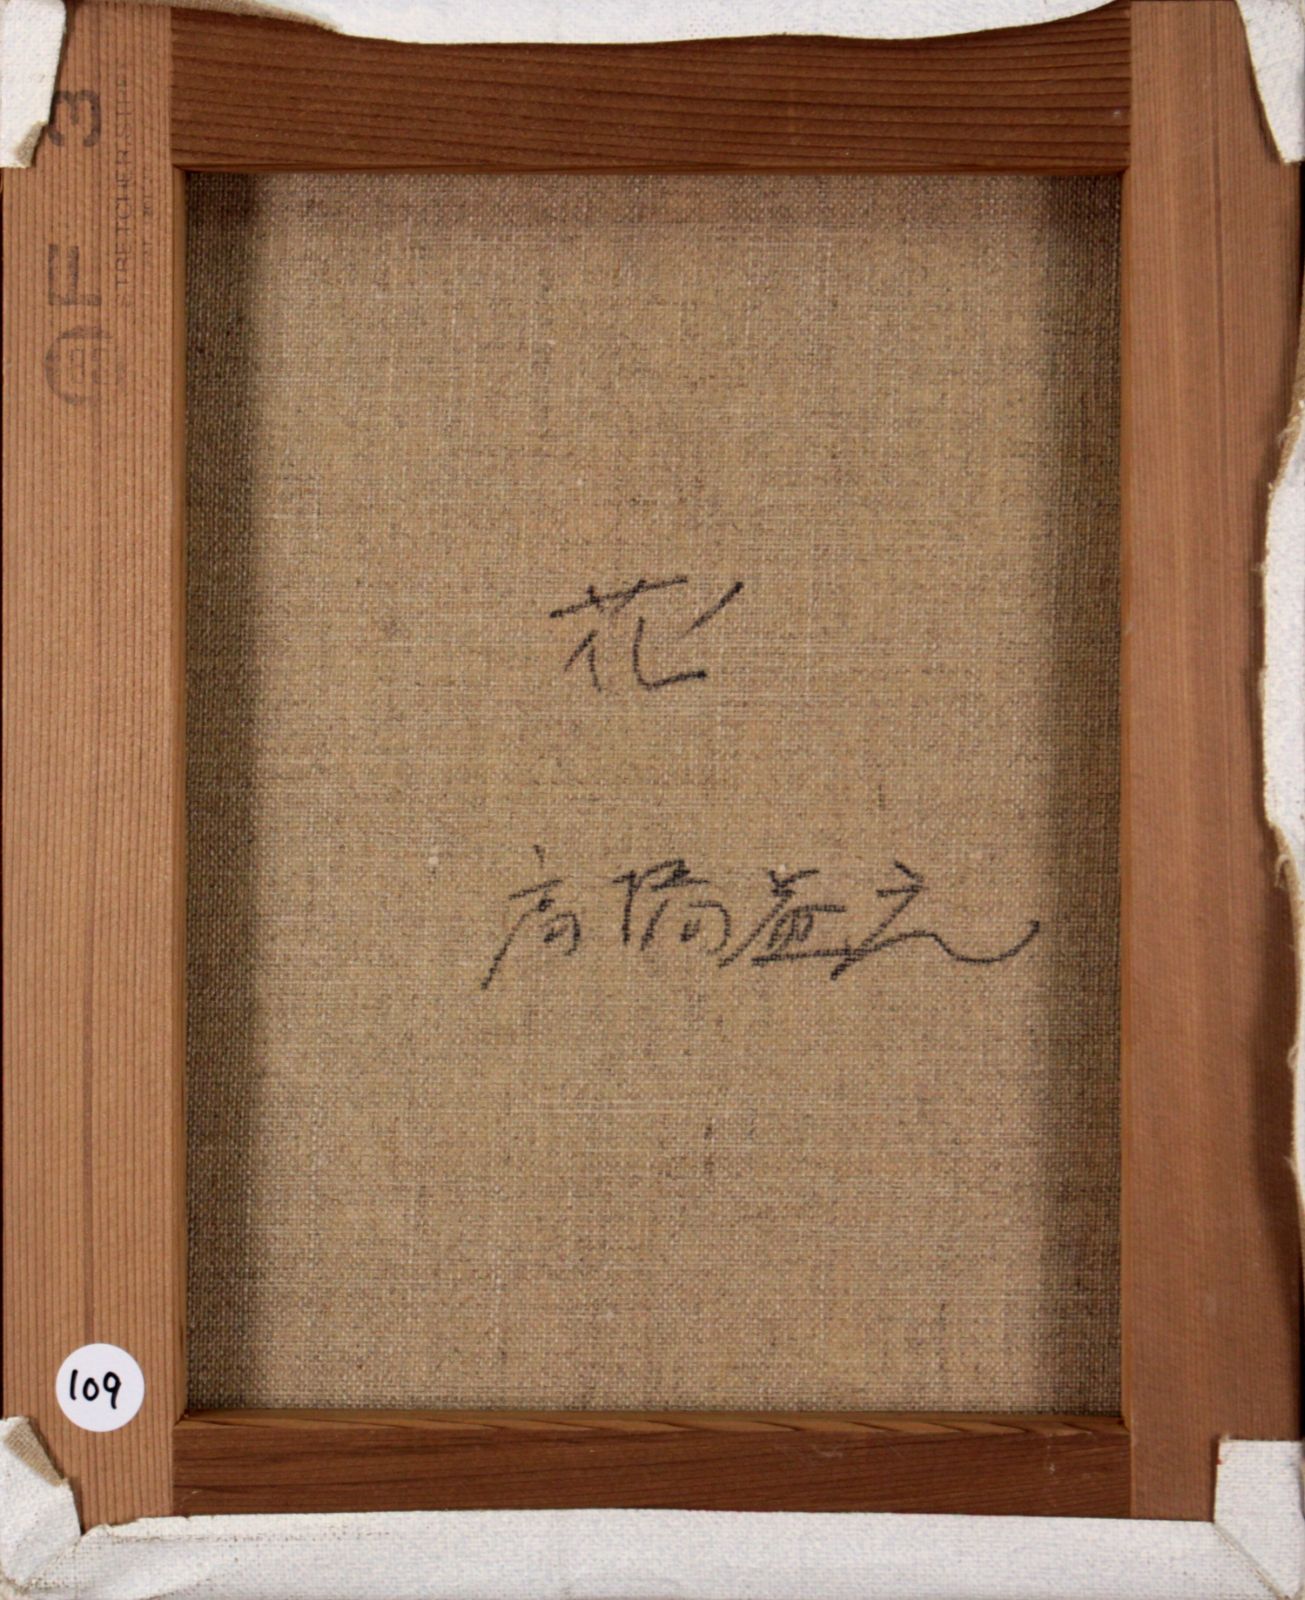 F 3
STRETCHER
花
高橋益之
109